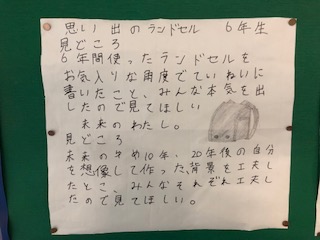 思い出のランドセル 6年生
見どころ
6年間使ったランドセルを
お気入りな角度でていねいに
書いたこと、みんな本気を出
したので見てほしい
未来のわたし。
見どころ
未来のため10年、20年後の自分
を想像して作った、背景を工夫し
たとこ、みんなそれぞれ工夫し
たので見てほしい。